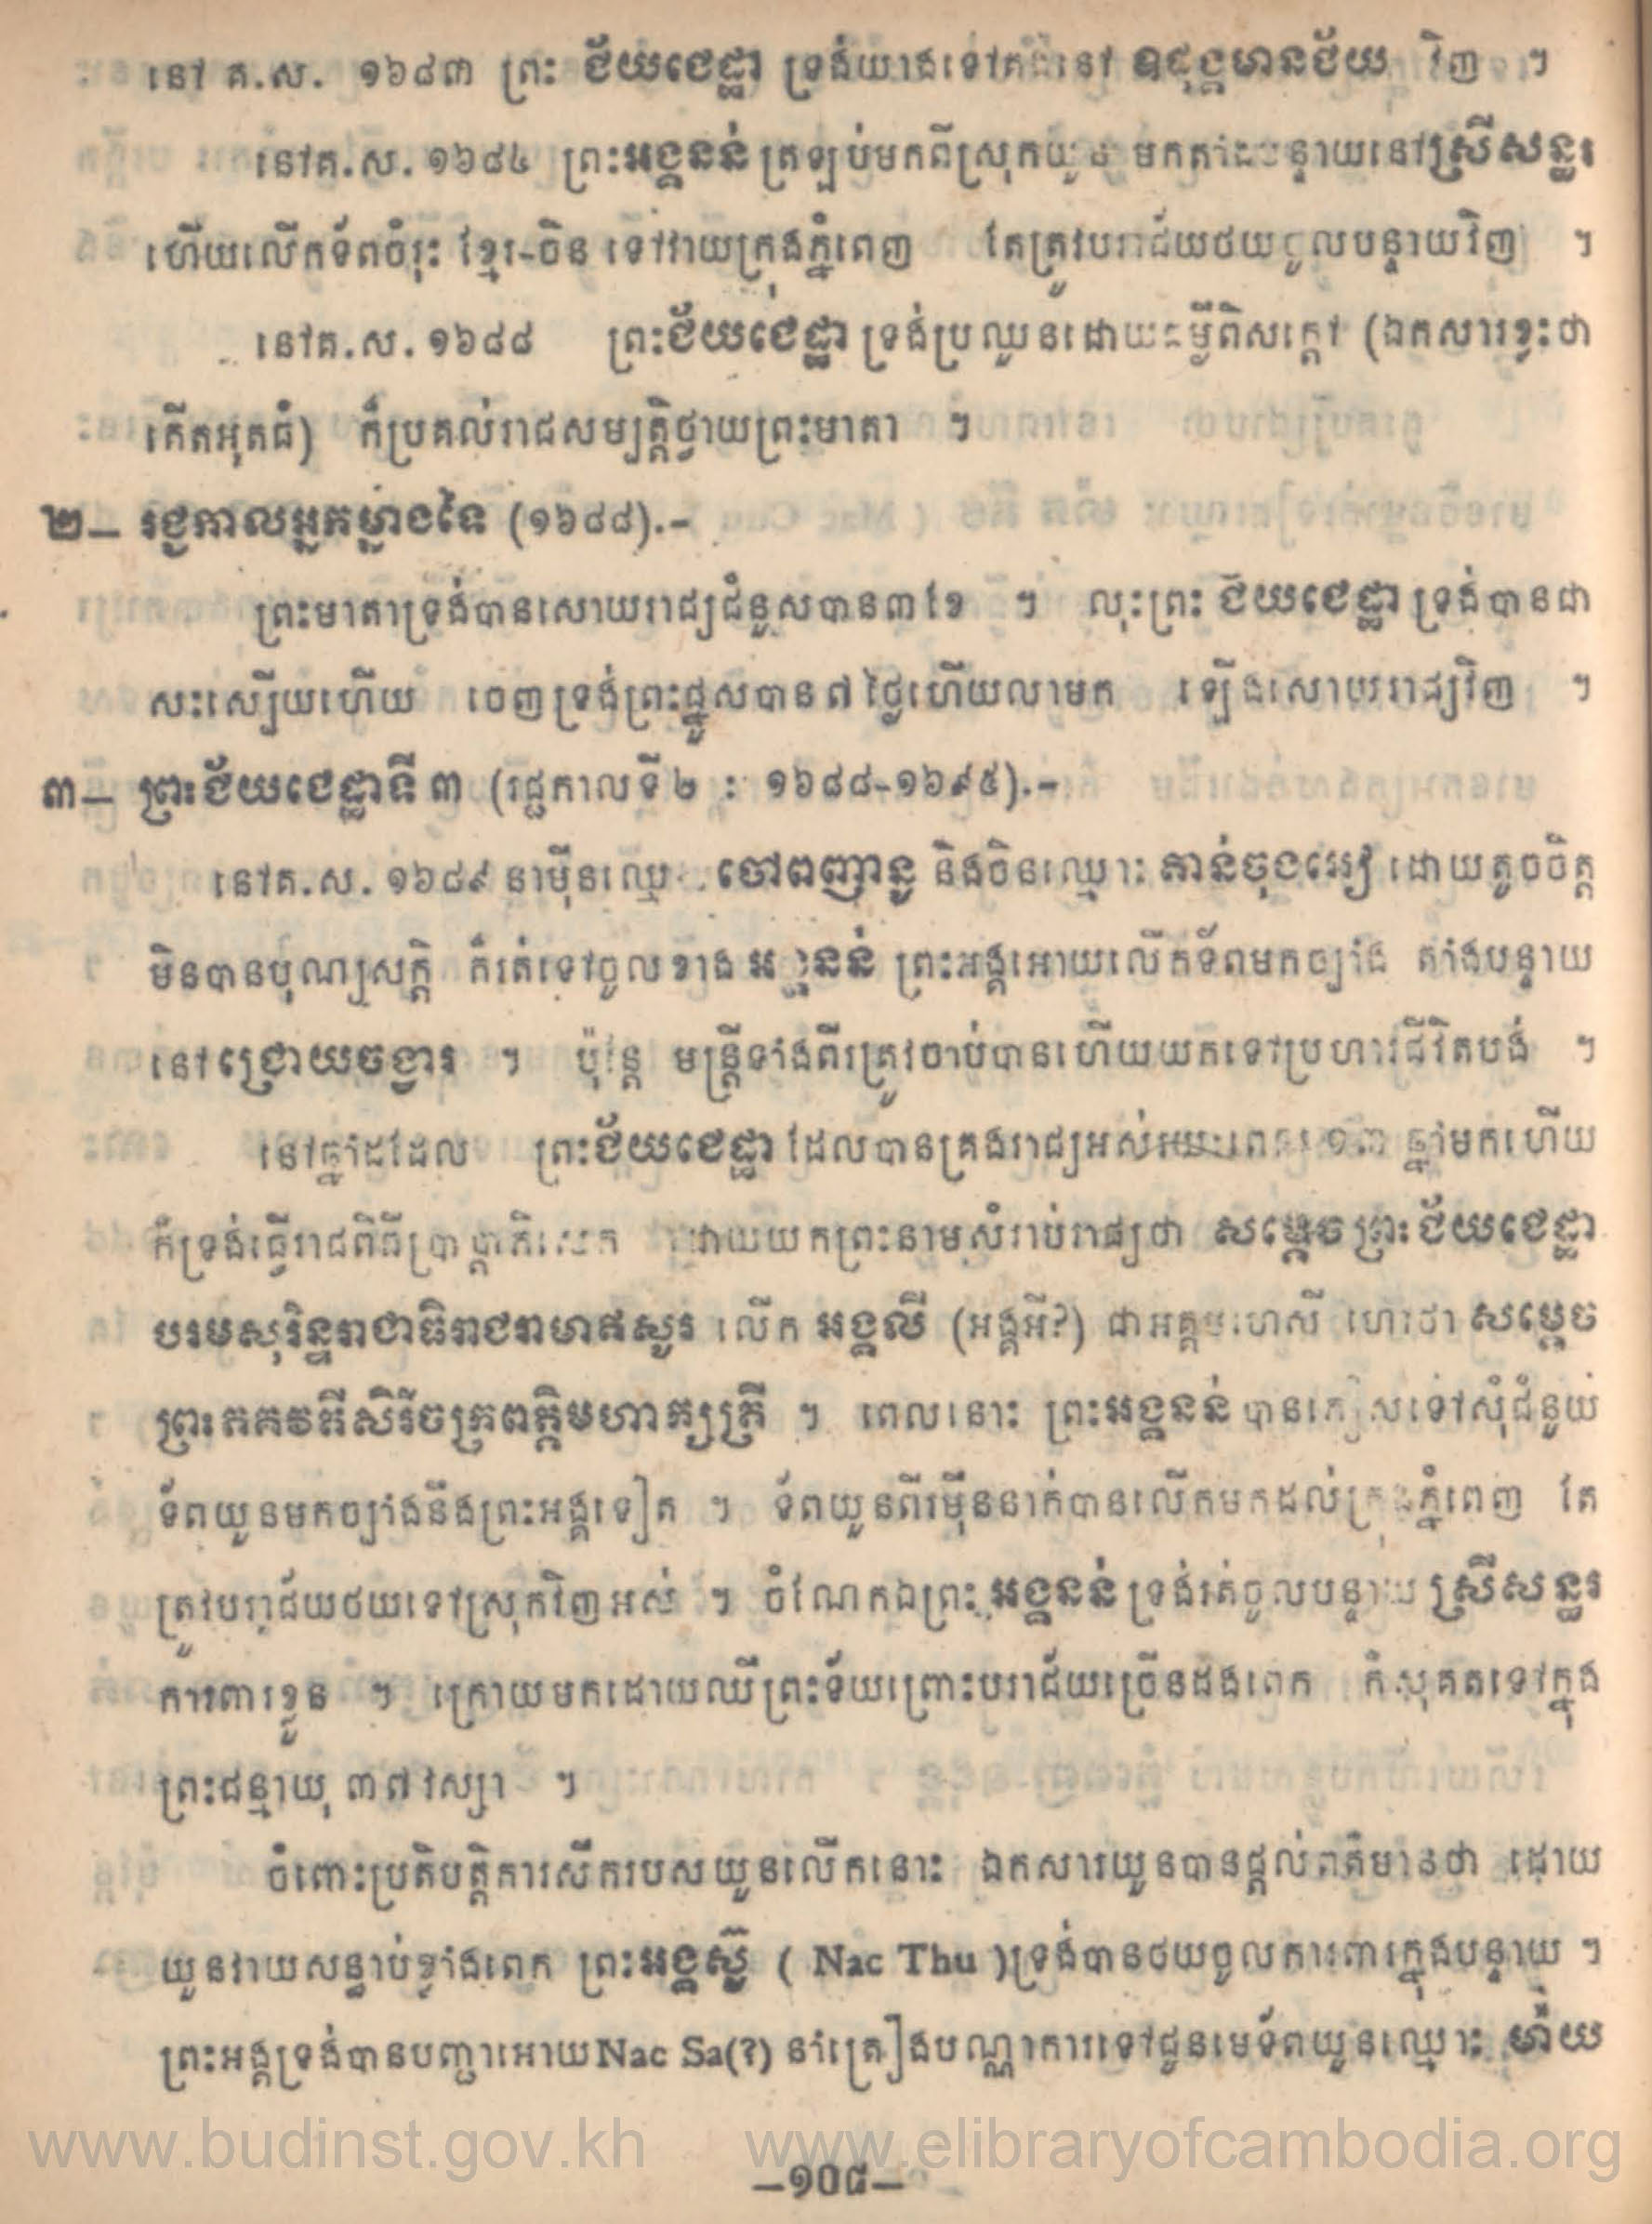 នៅ គ.ស. ១៦៨៣ ព្រះ ជ័យជេដ្ឋា ទ្រង់យាងទៅគង់នៅ ឧដុង្គមានជ័យ វិញ ។
នៅគ.ស. ១៦៨៤ ព្រះអង្គនន់ ត្រឡប់មកពីស្រុកយួន មកតាំងបន្ទាយនៅស្រីសន្ធរ
ហើយលើកទ័ពចំរុះ ខ្មែរ-ចិន ទៅវាយក្រុងភ្នំពេញ តែត្រូវបរាជ័យថយចូលបន្ទាយវិញ ។
នៅគ.ស. ១៦៨៨ ព្រះជ័យជេដ្ឋា ទ្រង់ប្រឈួនដោយជម្ងឺពិសក្តៅ (ឯកសារខ្លះថា
កើតអុតធំ) ក៏ប្រគល់រាជសម្បត្តិថ្វាយព្រះមាតា ។
២_ រជ្ជកាលអ្នកម្នាងទៃ (១៦៨៨).-
ព្រះមាតាទ្រង់បានសោយរាជ្យជំនួសបាន៣ខែ ។ លុះព្រះ ជ័យជេដ្ឋា ទ្រង់បានជា
សះស្បើយហើយ ចេញទ្រង់ព្រះផ្នួសបាន៧ ថ្ងៃហើយលាមក ឡើងសោយរាជ្យវិញ ។
៣_ ព្រះជ័យជេដ្ឋាទី ៣ (រជ្ជកាលទី ២ : ១៦៨៨-១៦៩៥).-
នៅគ.ស. ១៦៨៩ នាម៉ឺនឈ្មោះ ចៅពញានូ និងចិនឈ្មោះ តាន់ចុងអៀ ដោយតូចចិត្ត
មិនបានបុណ្យសក្តិ ក៏រត់ទៅចូលខាង អង្គនន់ ព្រះអង្គអោយលើកទ័ពមកច្បាំង តាំងបន្ទាយ
នៅជ្រោយចង្វារ ។ ប៉ុន្តែ មន្ត្រីទាំងពីរត្រូវចាប់បានហើយយកទៅប្រហារជីវិតបង់ ។
នៅឆ្នាំដដែល ព្រះជ័យជេដ្ឋា ដែលបានគ្រងរាជ្យអស់រយៈពេល ១៣ ឆ្នាំមកហើយ
ក៏ទ្រង់ធ្វើរាជពិធីប្រាប្តាភិសេក ដោយយកព្រះនាមសំរាប់រាជ្យថា សម្តេចព្រះជ័យជេដ្ឋា
បរមសុរិន្ទរាជាធិរាជរាមាឥសូរ លើក អង្គលី (អង្គអី?) ជាអគ្គមហេសី ហៅថា សម្តេច
ព្រះភគវតីសិរីចក្រពត្តិមហាក្សត្រី ។ ពេលនោះ ព្រះអង្គនន់ បានភៀសទៅសុំជំនួយ
ទ័ពយួនមកច្បាំងនឹងព្រះអង្គទៀត ។ ទ័ពយួនពីរម៉ឺននាក់បានលើកមកដល់ក្រុងភ្នំពេញ តែ
ត្រូវបរាជ័យថយទៅស្រុកវិញអស់ ។ ចំណែកឯព្រះអង្គនន់ ទ្រង់រត់ចូលបន្ទាយ ស្រីសន្ធរ
ការពារខ្លួន ។ ក្រោយមកដោយឈឺព្រះទ័យព្រោះបរាជ័យច្រើនដងពេក ក៏សុគតទៅក្នុង
ព្រះជន្មាយុ ៣៧ វស្សា ។
ចំពោះប្រតិបត្តិការសឹករបសយួនលើកនោះ ឯកសារយួនបានផ្តល់ពត៌មានថា ដោយ
យួនវាយសន្ធាប់ខ្លាំងពេក ព្រះអង្គស៊ូ ( Nac Thu )ទ្រង់បានថយចូលការពារក្នុងបន្ទាយ ។
ព្រះអង្គទ្រង់បានបញ្ជាអោយNac Sa(?) នាំគ្រឿងបណ្ណាការទៅជូនមេទ័ពយួនឈ្មោះ ម៉ាយ
www.budinst.gov.kh www.elibraryofcambodia.org
_១០៨_